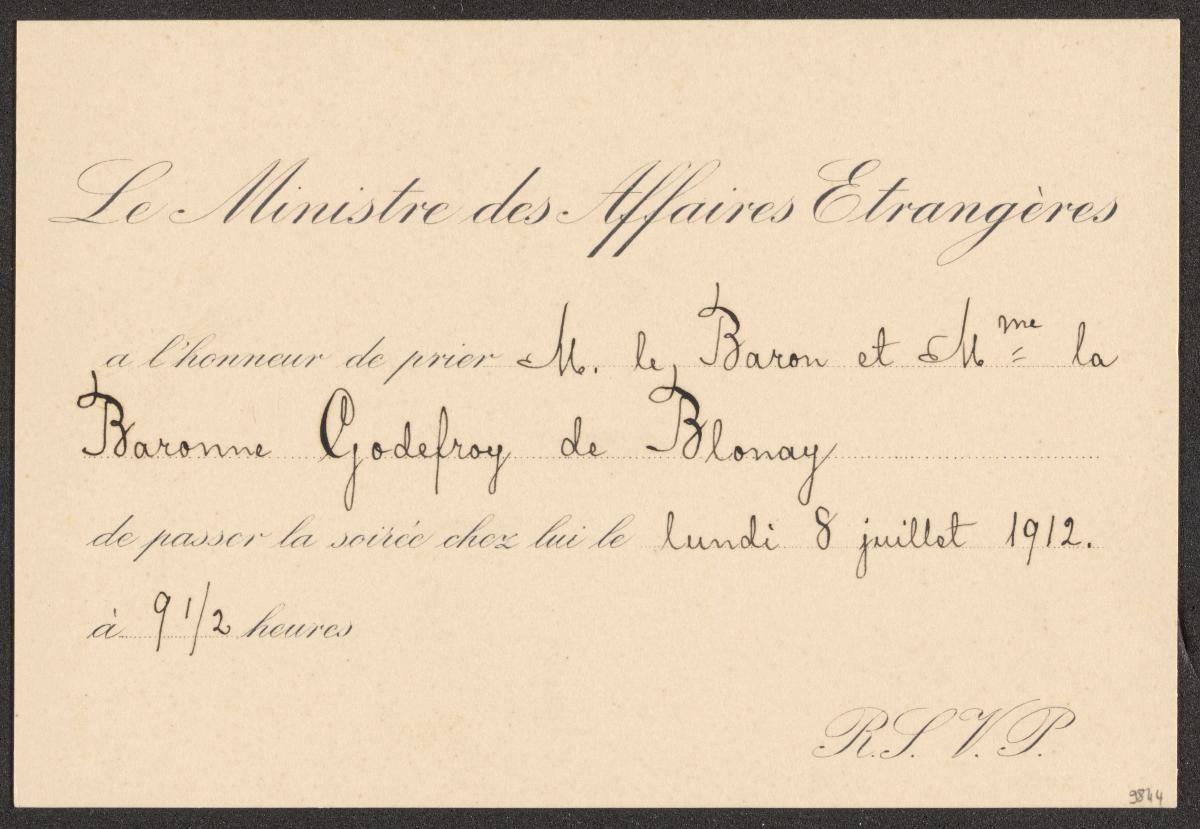 Le Ministre des Affaires Etrangères
a l'honneur de prier M. le Baron et Mme la
Baronne Godefroy de Blonay
de passer la soirée chez lui le lundi 8 juillet 1912.
à 9 1/2 heures
R.S.V.P.
9844